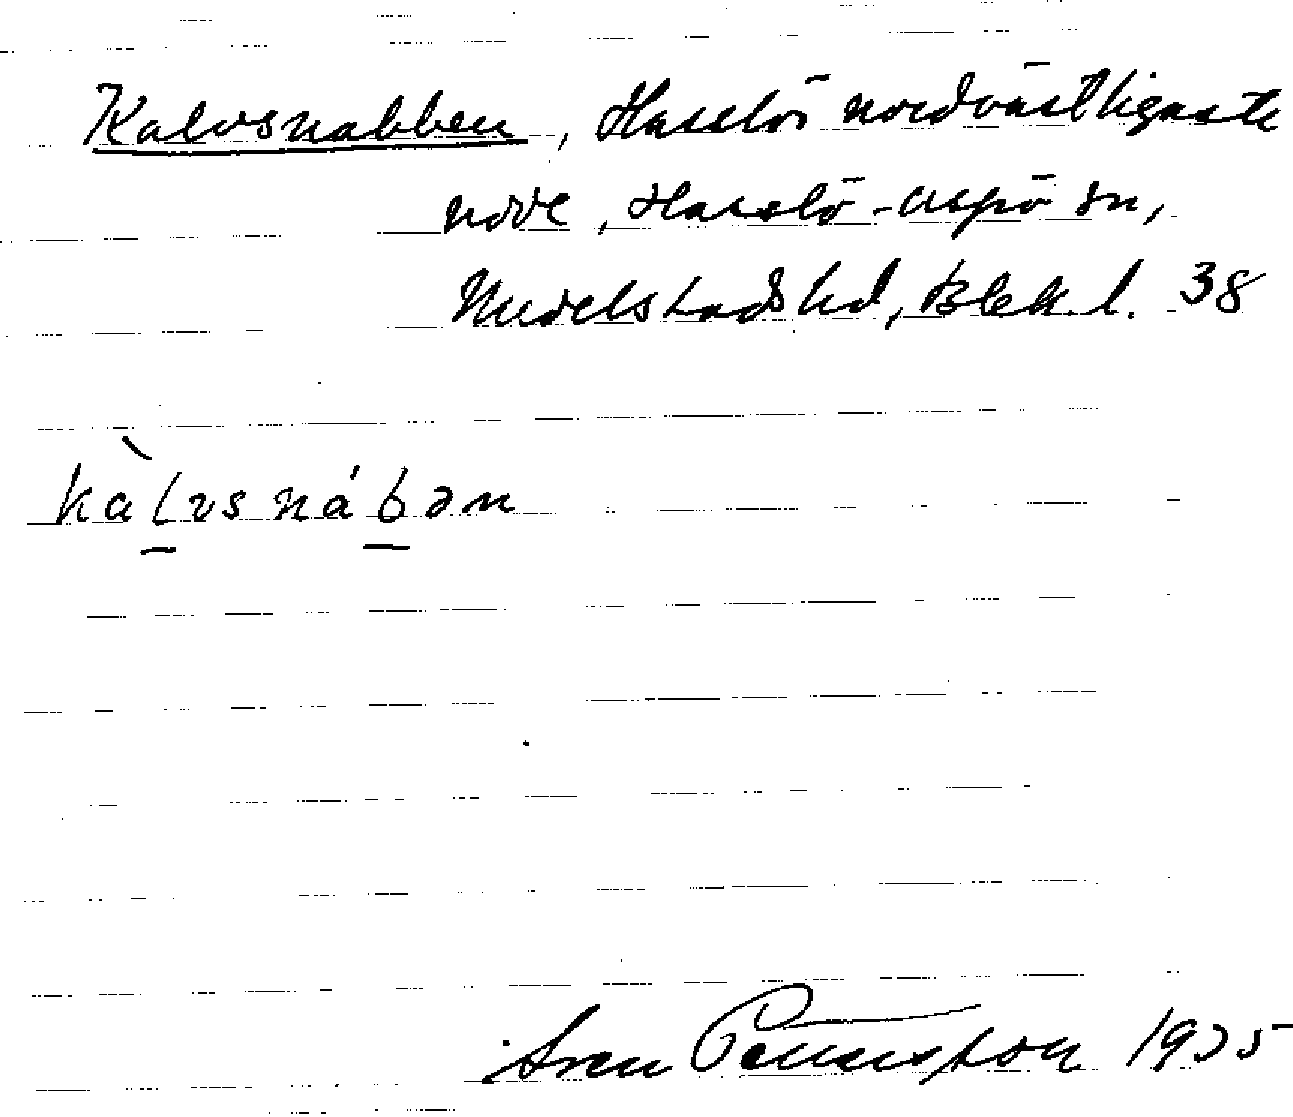 Kalvsnabben, Hasslös nordvästligaste
udde, Hasslö-Aspö sn,
Medelstads hd, Blek. l. 38
kàlvsnábən
Sven 1935